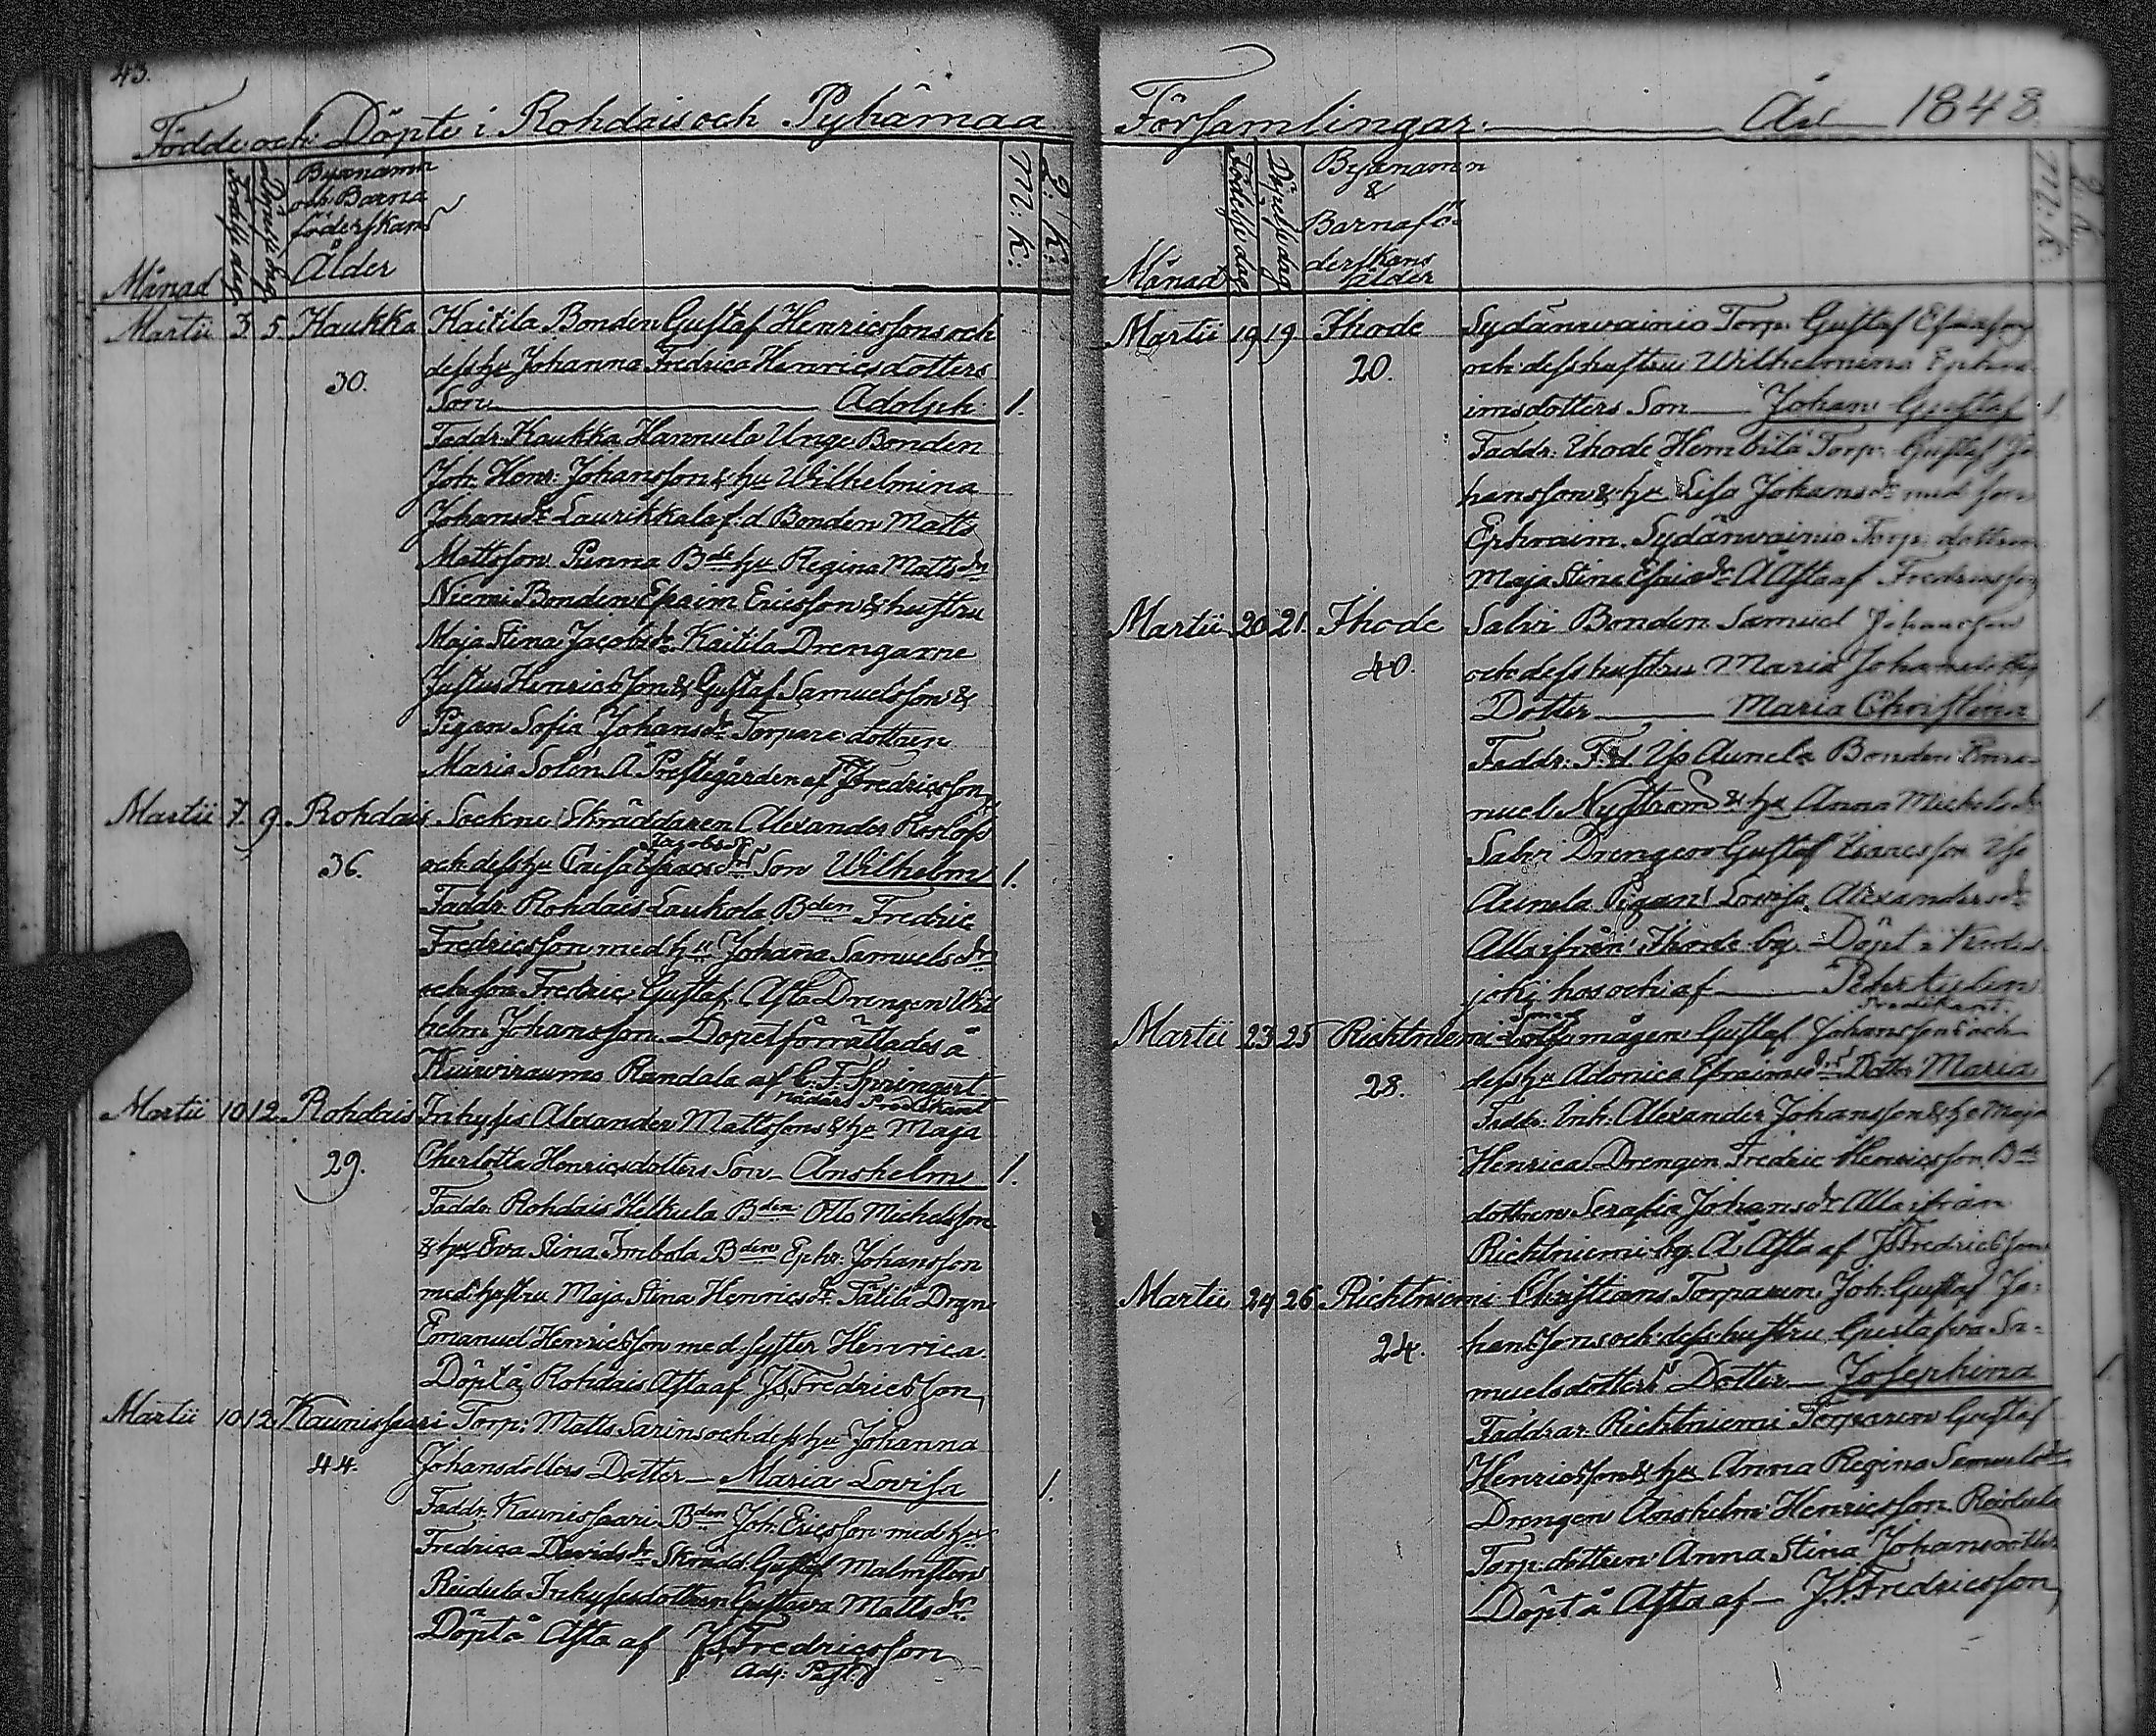 43.
Födde och Döpte i Rohdais och Pyhämaa
Månad
Födelse dag
Döpelse dag
Byanamn
och Barna
föderskans
Ålder
M: K:
Q: K:
Martii 3 5 Kaukka Kaitila Bonden Gustaf Henricssons och
30. dess hu Johanna Fredrica Henricsdotters
Son Adolph 1.
Faddr. Kaukka Hannula Unge Bonden
Joh. Henr. Johansson & hu Wilhelmina
Johansdr Laurikkala f.d Bonden Matts
Mattsson Pinna Bde hu Regina Mattsdr
Niemi Bonden Efraim Ericsson & hustru
Maja Stina Jacobsdr Kaitila Drengarne
Justus Henricsson & Gustaf Samuelsson &
Pigan Sofia Johansdr Torpare dottren
Maria Solen Å Prestegården af Fredricsson
Martii 7. 9. Rohdais Sockne Skräddaren Alexander
36. och dess hu Caisa Jacobsdrs Son Wilhelm 1.
Faddr. Rohdais Laukola Bden Fredric
Fredricsson med hu Johanna Samuelsdr
och son Fredric Gustaf. Asta Drengen Wil
helm Johansson. Dopet förrättades å
Randala af C. F. Springert
Predikant
Martii 10 12 Rohdais Inhyses Alexander Mattssons & hu Maja
29. Cherlotta Henricsdotters Son Anshelm 1.
Faddr. Rohdais Kelkula Bden Otto Michelsson
& hu Eva Stina Imbola Bden Ephr. Johansson
med hustru Maja Stina Henricsdr Tätilä Drgn
Emanuel Henricsson med syster Henrica.
Döpt å Rohdais Asta af Js Fredricsson
Martii 10 12 Kaunissaari Torp: Matts Sarins och dess hu Johanna
44. Johansdotters Dotter Maria Lovisa 1.
Faddr. Kaunissaari Bden Joh. Ericsson med hu
Fredrica Davidsdr Skrädd. Gustaf Malmsten
Reidula Inhysesdottren Gustava Mattsdr
Döpt å Asta af Js Fredricsson
Adj: Past:
Församlingar. År 1848
Månad
Födelse dag
Döpelse dag
Byanamn
&
Barnafö-
derskans
ålder
M: K.
Q. K.
Martii 19 19. Ihode Sydänwainio Torp. Gustaf Esaiasson
20. och dess hustru Wilhelmina Ephra-
imsdotters Son Johan Gustaf 1.
Faddr. Ihode Hembilä Torp. Gustaf Jo
hansson & hu Lisa Johansdr med son
Ephraim. Sydänwainio Torp: dottren
Maja Stina Esaiedr Å Asta af Fredricsson
Martii 20 21. Ihode Salvi Bonden Samuel Johansson
40. och dess hustru Maria Johansdotters
Dotter Maria Christina 1
Faddr. Aunela Bonden Ema-
nuel Nyström & hu Anna Michelsdr
Salvi Drengen Gustaf Isaacsson
Aunela Pigan Lovisa Alexandersdr
Alla ifrån Ihode by. Döpt i
joki hos och af
Predikant.
Martii 23 25 Richtniemi mågen Gustaf Johanssons och
28. dess hu Adonica Efraimsdrs Dotter Maria 1
Faddr. Inh. Alexander Johansson & hu Maja
Henrica Drengen Fredric Henricsson, Bde
dottren Serafia Johansdr Alla ifrån
Richtniemi by. Å Asta af Js Fredricsson
Martii 24 26 Richtniemi Christians Torparen Joh. Gustaf Jo-
24. hanssons och dess hustru Gustafva Sa-
muelsdotters Dotter Josephina 1
Faddrar Richtniemi Torparen Gustaf
Henricsson & hu Anna Regina Samuelsdr
Drengen Anshelm Henricsson Reidula
Torp. dottren Anna Stina Johansdotter
Döpt å Asta af Js Fredricsson